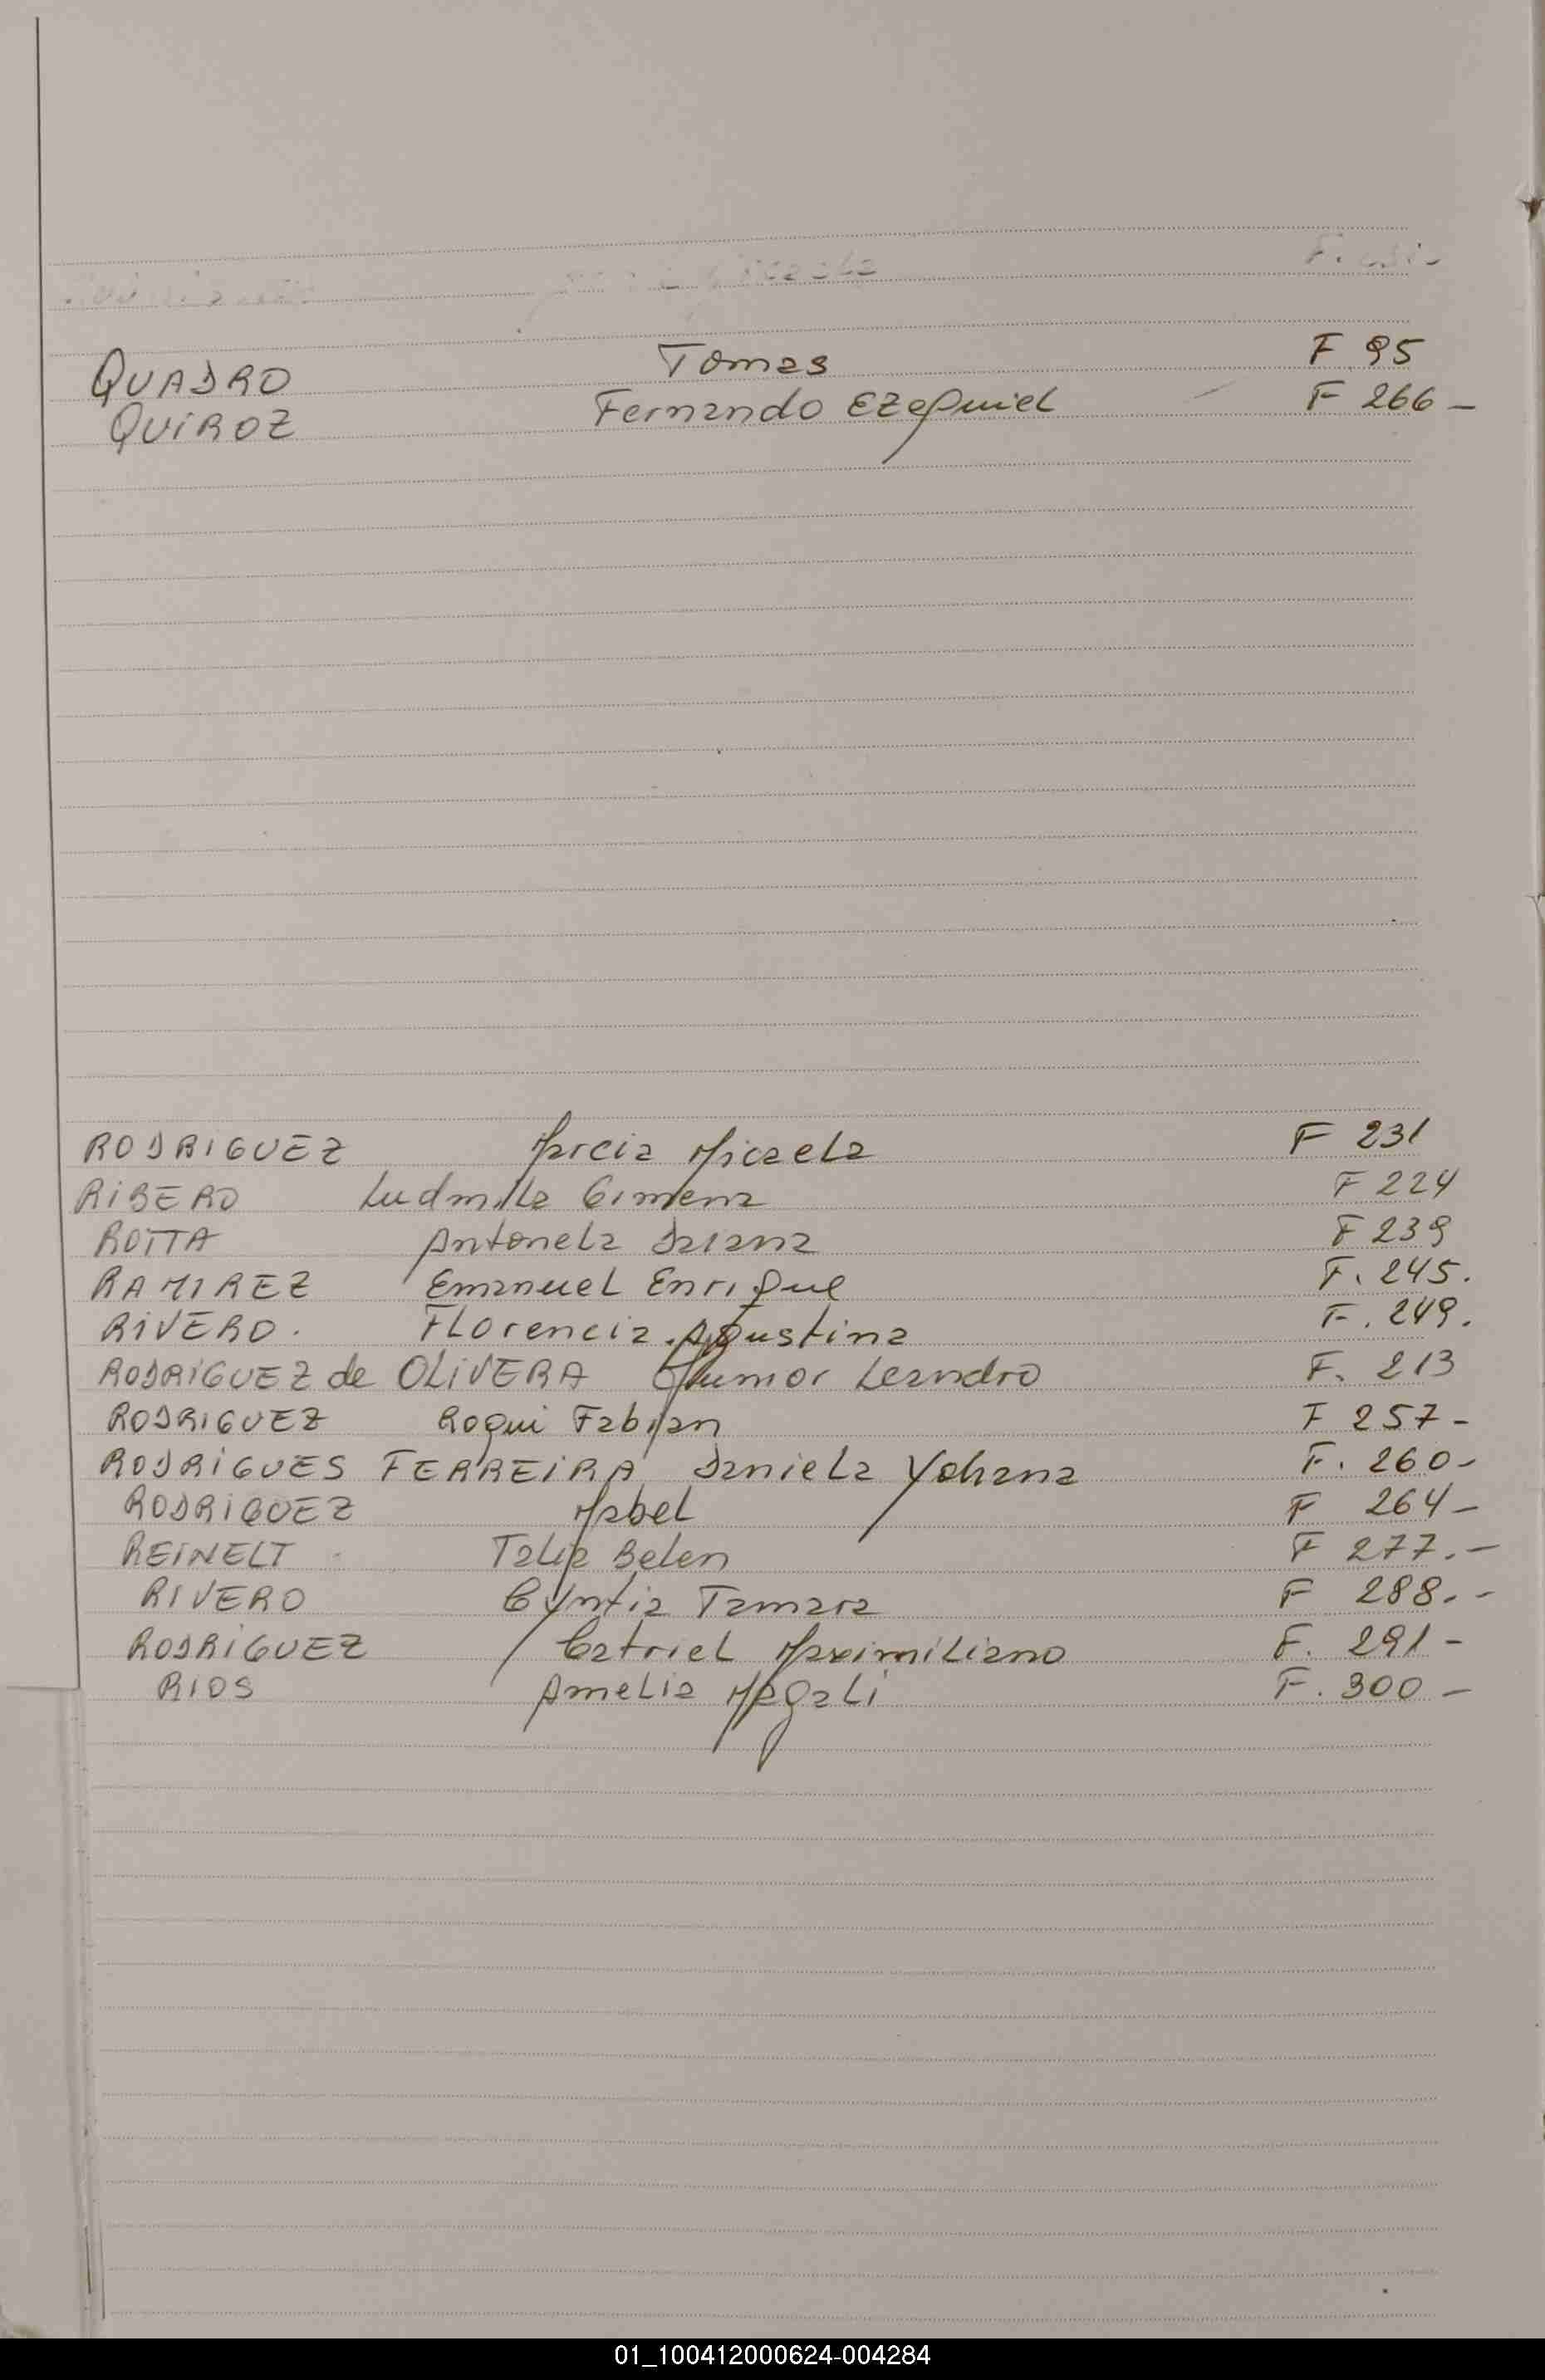 QUADRO Tomas F 95
QUIROZ Fernando Ezequiel F 266 -
RODRIGUEZ Marcia Micaela F 231
RIBERO Ludmila Gimena F 224
ROTTA Antonela Daiana F 239
RAMIREZ Emanuel Enrique F. 245.
RIVERO. Florencia Agustina F. 249.
RODRIGUEZ de OLIVERA Junior Leandro F. 213
RODRIGUEZ Roqui Fabian F 257 -
RODRIGUES FERREIRA Daniela Yohana F. 260 -
RODRIGUEZ Mabel F 264 -
REINELT Talia Belen F 277. -
RIVERO Cyntia Tamara F 288. -
RODRIGUEZ Catriel Maximiliano F. 291 -
RIOS Amelia Magali F. 300 -
01_100412000624-004284